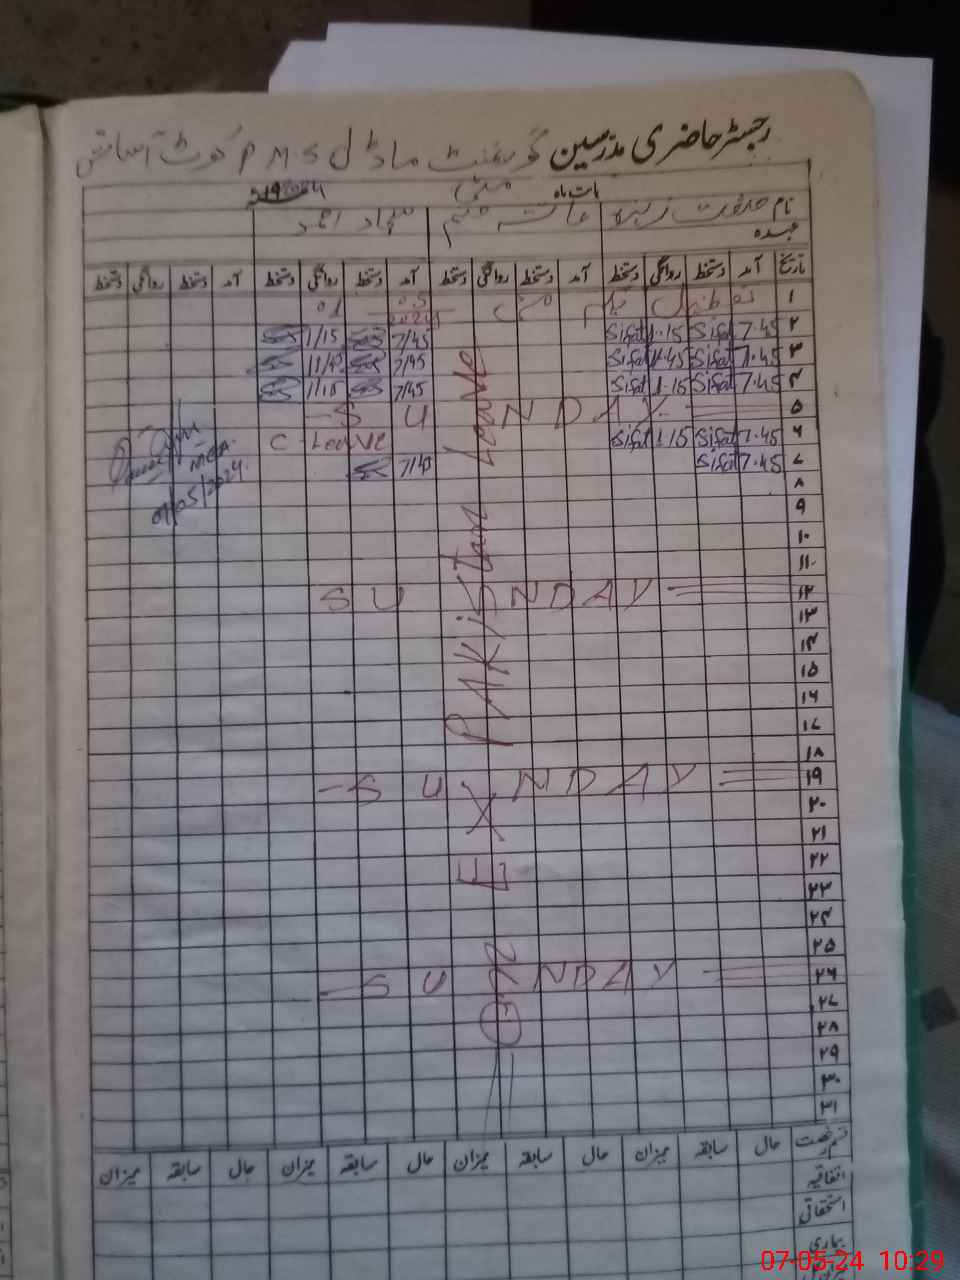 رجسٹر حاضری مدرسین گورنمنٹ ماڈل P M S کوٹ آسائش
بابت ماہ مئی 2024
نام صفوت زہرہ عائشہ صنم سجاد احمد
عہدہ
تاریخ آمد دستخط روانگی دستخط آمد دستخط روانگی دستخط آمد دستخط روانگی دستخط آمد دستخط روانگی دستخط
۱ تعطیل یکم مئی 05 01
2024
۲ 7.45 Sifat 1.15 Sifat 7/45 1/15
۳ 7.45 Sifat 1.45 Sifat 7/45 1/45
۴ 7.45 Sifat 1.15 Sifat 7/45 1/15
۵ SUNDAY
۶ 7.45 Sifat 1.15 Sifat C Leave
۷ 7.45 Sifat 7/45
MEA
07/05/2024
۸
۹
۱۰
۱۱
۱۲ SUNDAY
۱۳
۱۴
۱۵
۱۶
۱۷
۱۸
۱۹ SUNDAY
۲۰
۲۱
۲۲
۲۳
۲۴
۲۵
۲۶ SUNDAY
۲۷
۲۸
۲۹
۳۰
۳۱
On EX PAKistan Leave
قسم رخصت حال سابقہ میزان حال سابقہ میزان حال سابقہ میزان حال سابقہ میزان
اتفاقیہ
استحقاقی
بیماری
07-05-24 10:29